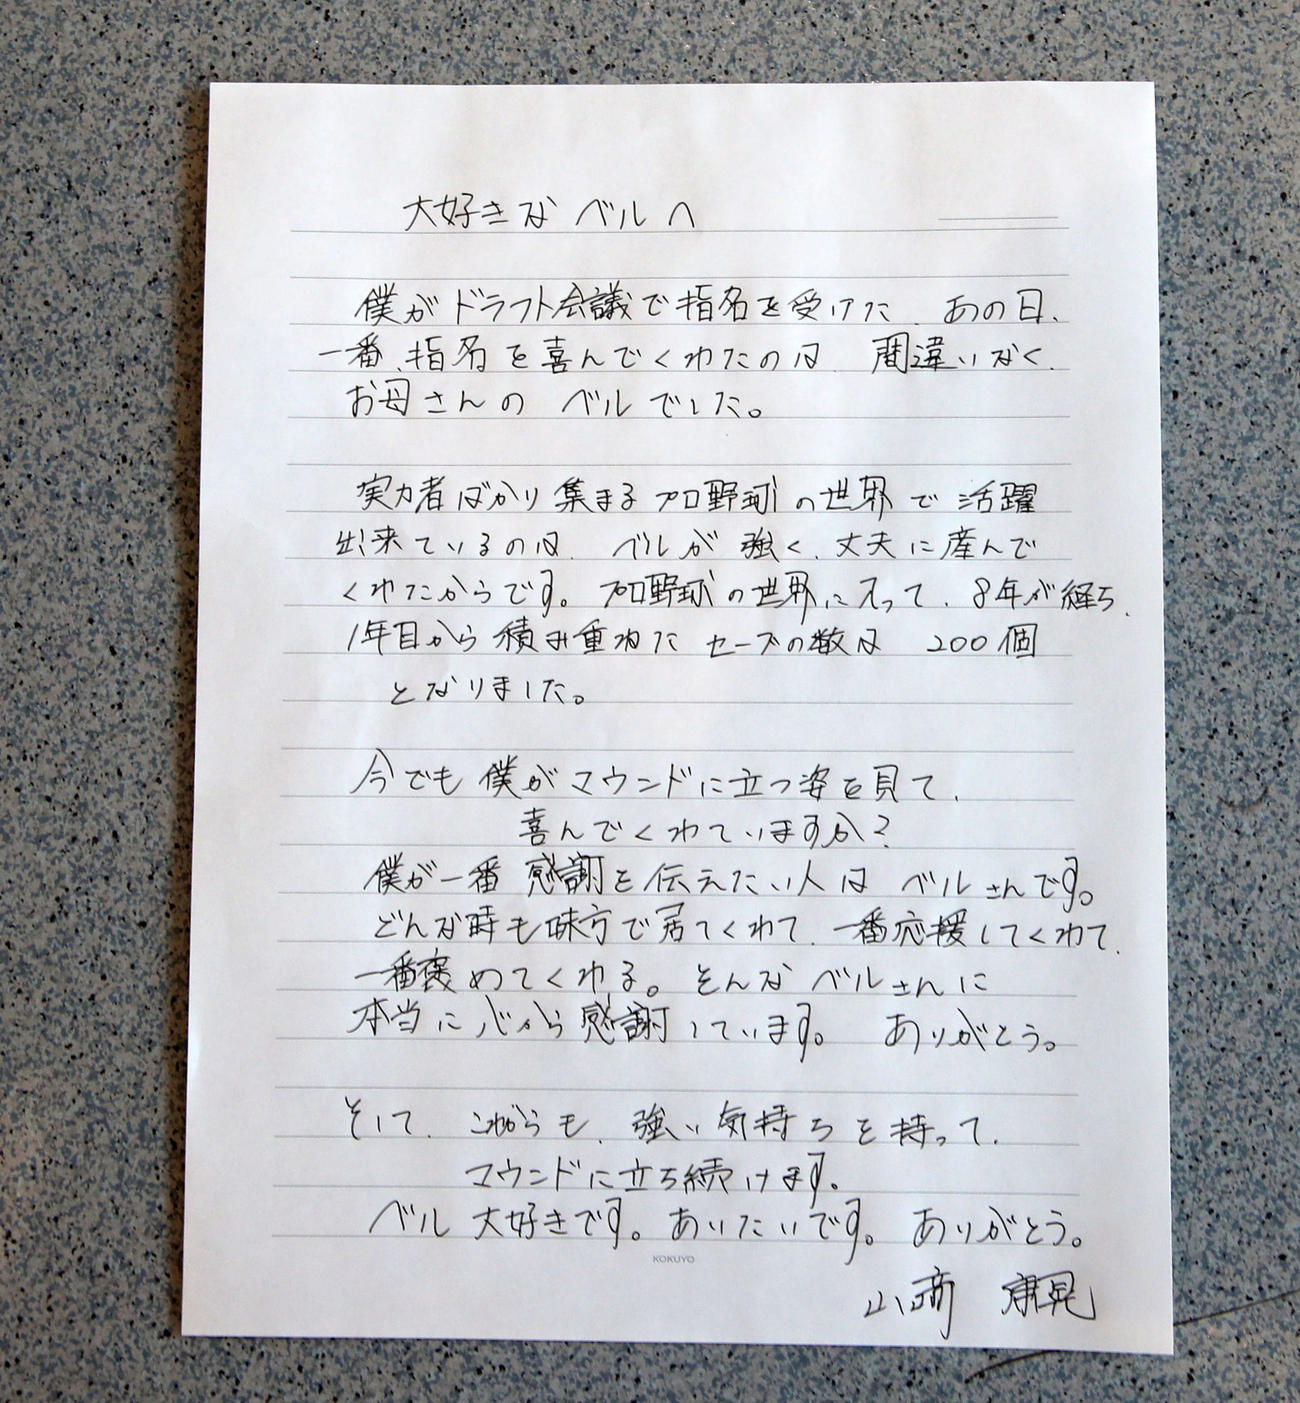 大好きな ベルへ
僕がドラフト会議で指名を受けた、あの日、
一番、指名を喜んでくれたのは、間違いなく、
お母さんの ベルでした。
実力者ばかり集まるプロ野球の世界で活躍
出来ているのは、ベルが強く、丈夫に産んで
くれたからです。プロ野球の世界に入って、8年が経ち、
1年目から積み重ねた セーブの数は 200個
となりました。
今でも僕がマウンドに立つ姿を見て、
喜んでくれていますか?
僕が一番感謝を伝えたい人は ベルさんです。
どんな時も味方で居てくれて、一番応援してくれて、
一番褒めてくれる。そんな ベルさんに
本当に心から感謝しています。 ありがとう。
そして、これからも、強い気持ちを持って、
マウンドに立ち続けます。
ベル 大好きです。あいたいです。 ありがとう。
KOKUYO
山﨑 康晃